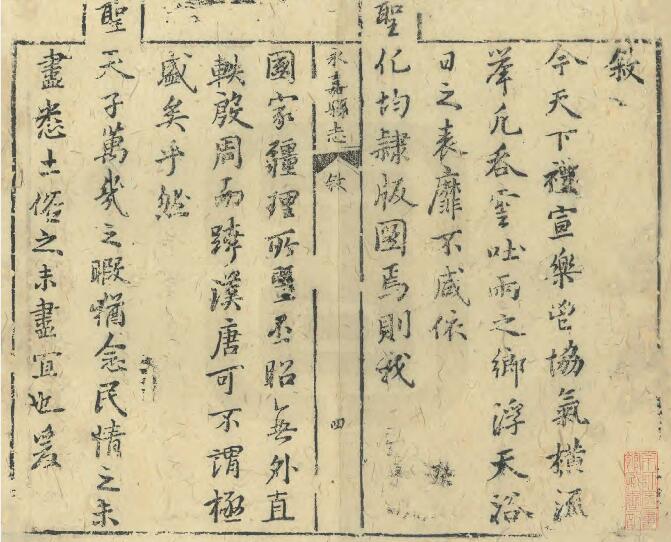 敘
今天下禮宣樂鬯協氣橫流
舉凡吞雲吐雨之鄉浮天浴
日之表靡不咸依
聖化均隸版圖焉則我
永嘉縣志
敘
四
國家疆理所曁丕昭無外直
軼殷周而跨漢唐可不謂極
盛矣乎然
聖天子萬幾之暇猶念民情之未
盡悉土俗之未盡宜也爰